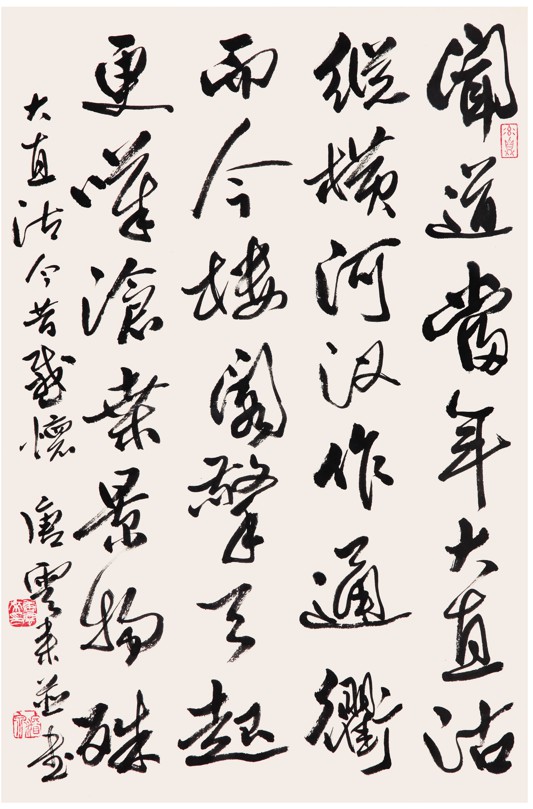 聞道當年大直沽
縱橫河汊作通衢
而今樓閣擎天起
更嘆滄桑景物殊
大直沽今昔感懷 唐雲來並書